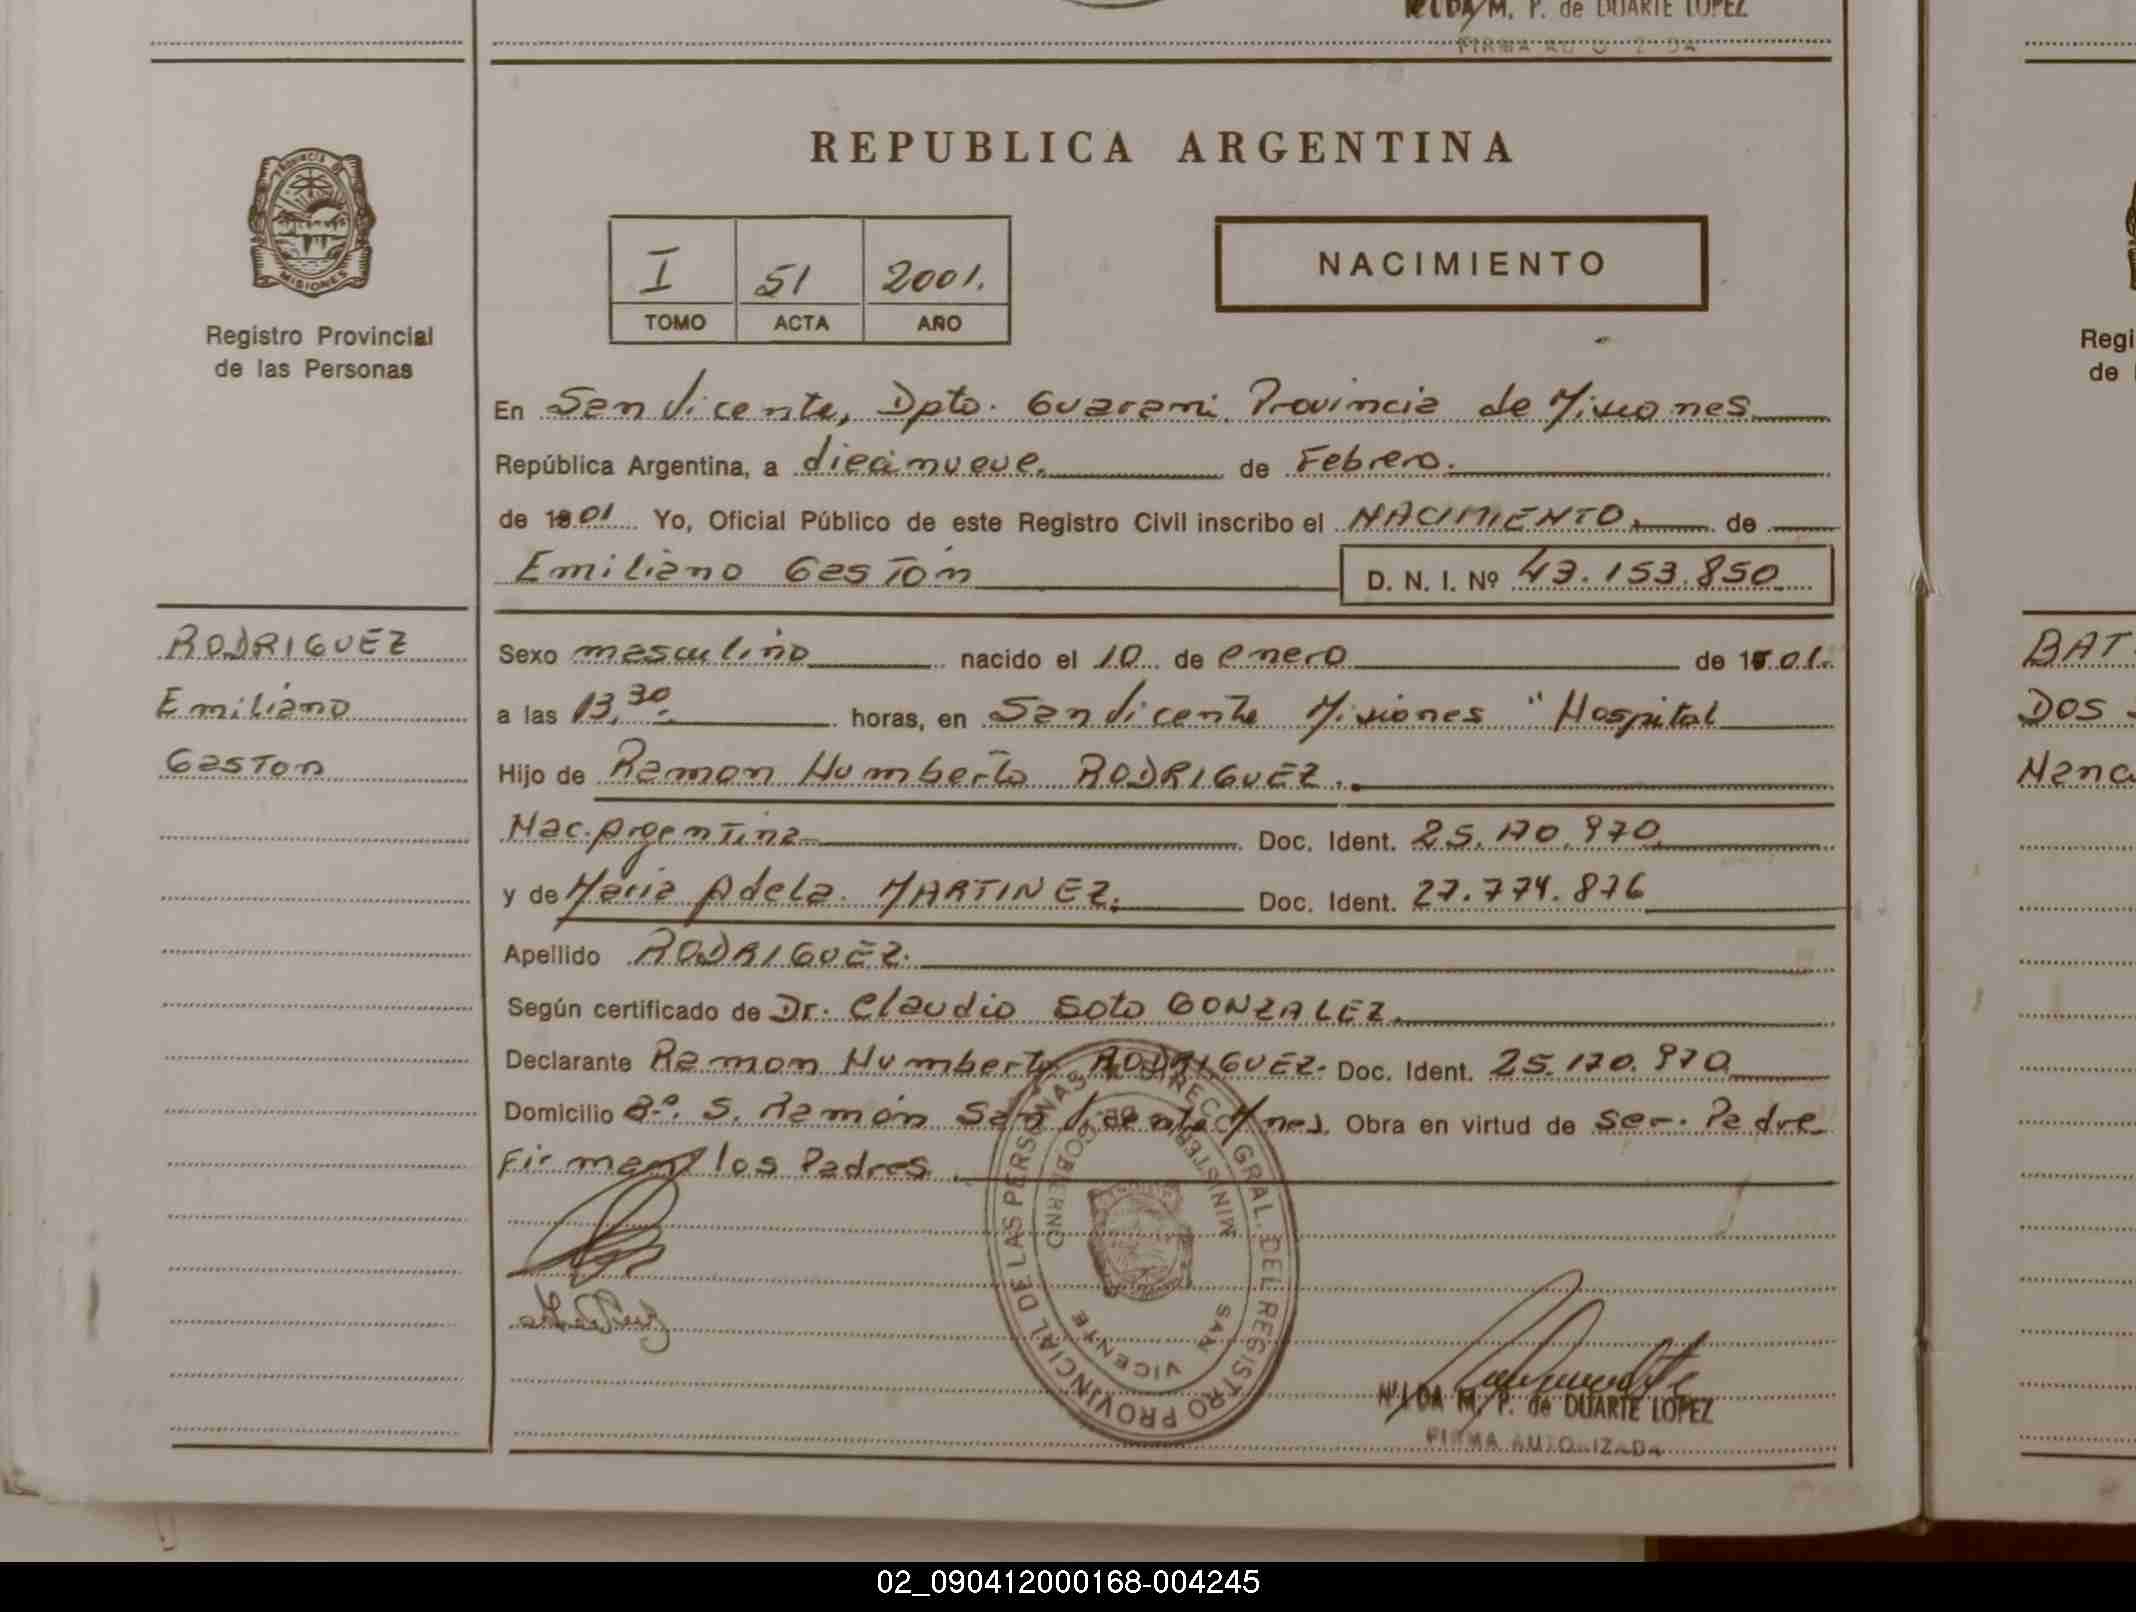 NILDA M. P. de DUARTE LOPEZ
REPUBLICA ARGENTINA
PROVINCIA DE
MISIONES
Registro Provincial
de las Personas
I 51 2001.
TOMO ACTA AÑO
NACIMIENTO
En San Vicente, Dpto. Guarani. Provincia de Misiones
República Argentina, a diecinueve. de Febrero.
de 01 Yo, Oficial Público de este Registro Civil inscribo el NACIMIENTO. de
Emiliano Gastón D. N. I. Nº 43.153.850
RODRIGUEZ
Emiliano
Gaston
Sexo masculino nacido el 10 de enero de 01.
a las 13,30. horas, en San Vicente Misiones "Hospital
Hijo de Ramon Humberto RODRIGUEZ.
Nac. Argentina Doc. Ident. 25.170.970
y de Maria Adela. MARTINEZ. Doc. Ident. 27.774.876
Apellido RODRIGUEZ.
Según certificado de Dr. Claudio Soto GONZALEZ.
Declarante Ramon Humberto RODRIGUEZ. Doc. Ident. 25.170.970
Domicilio Bº. S. Ramón San Vicente Mnes. Obra en virtud de ser. Padre
Firman los Padres.
DIRECC. GRAL. DEL REGISTRO PROVINCIAL DE LAS PERSONAS
MINISTERIO DE GOBIERNO
SAN VICENTE
NILDA M. P. de DUARTE LOPEZ
FIRMA AUTORIZADA
Regi
de
BAT
DOS
Nanc
02_090412000168-004245